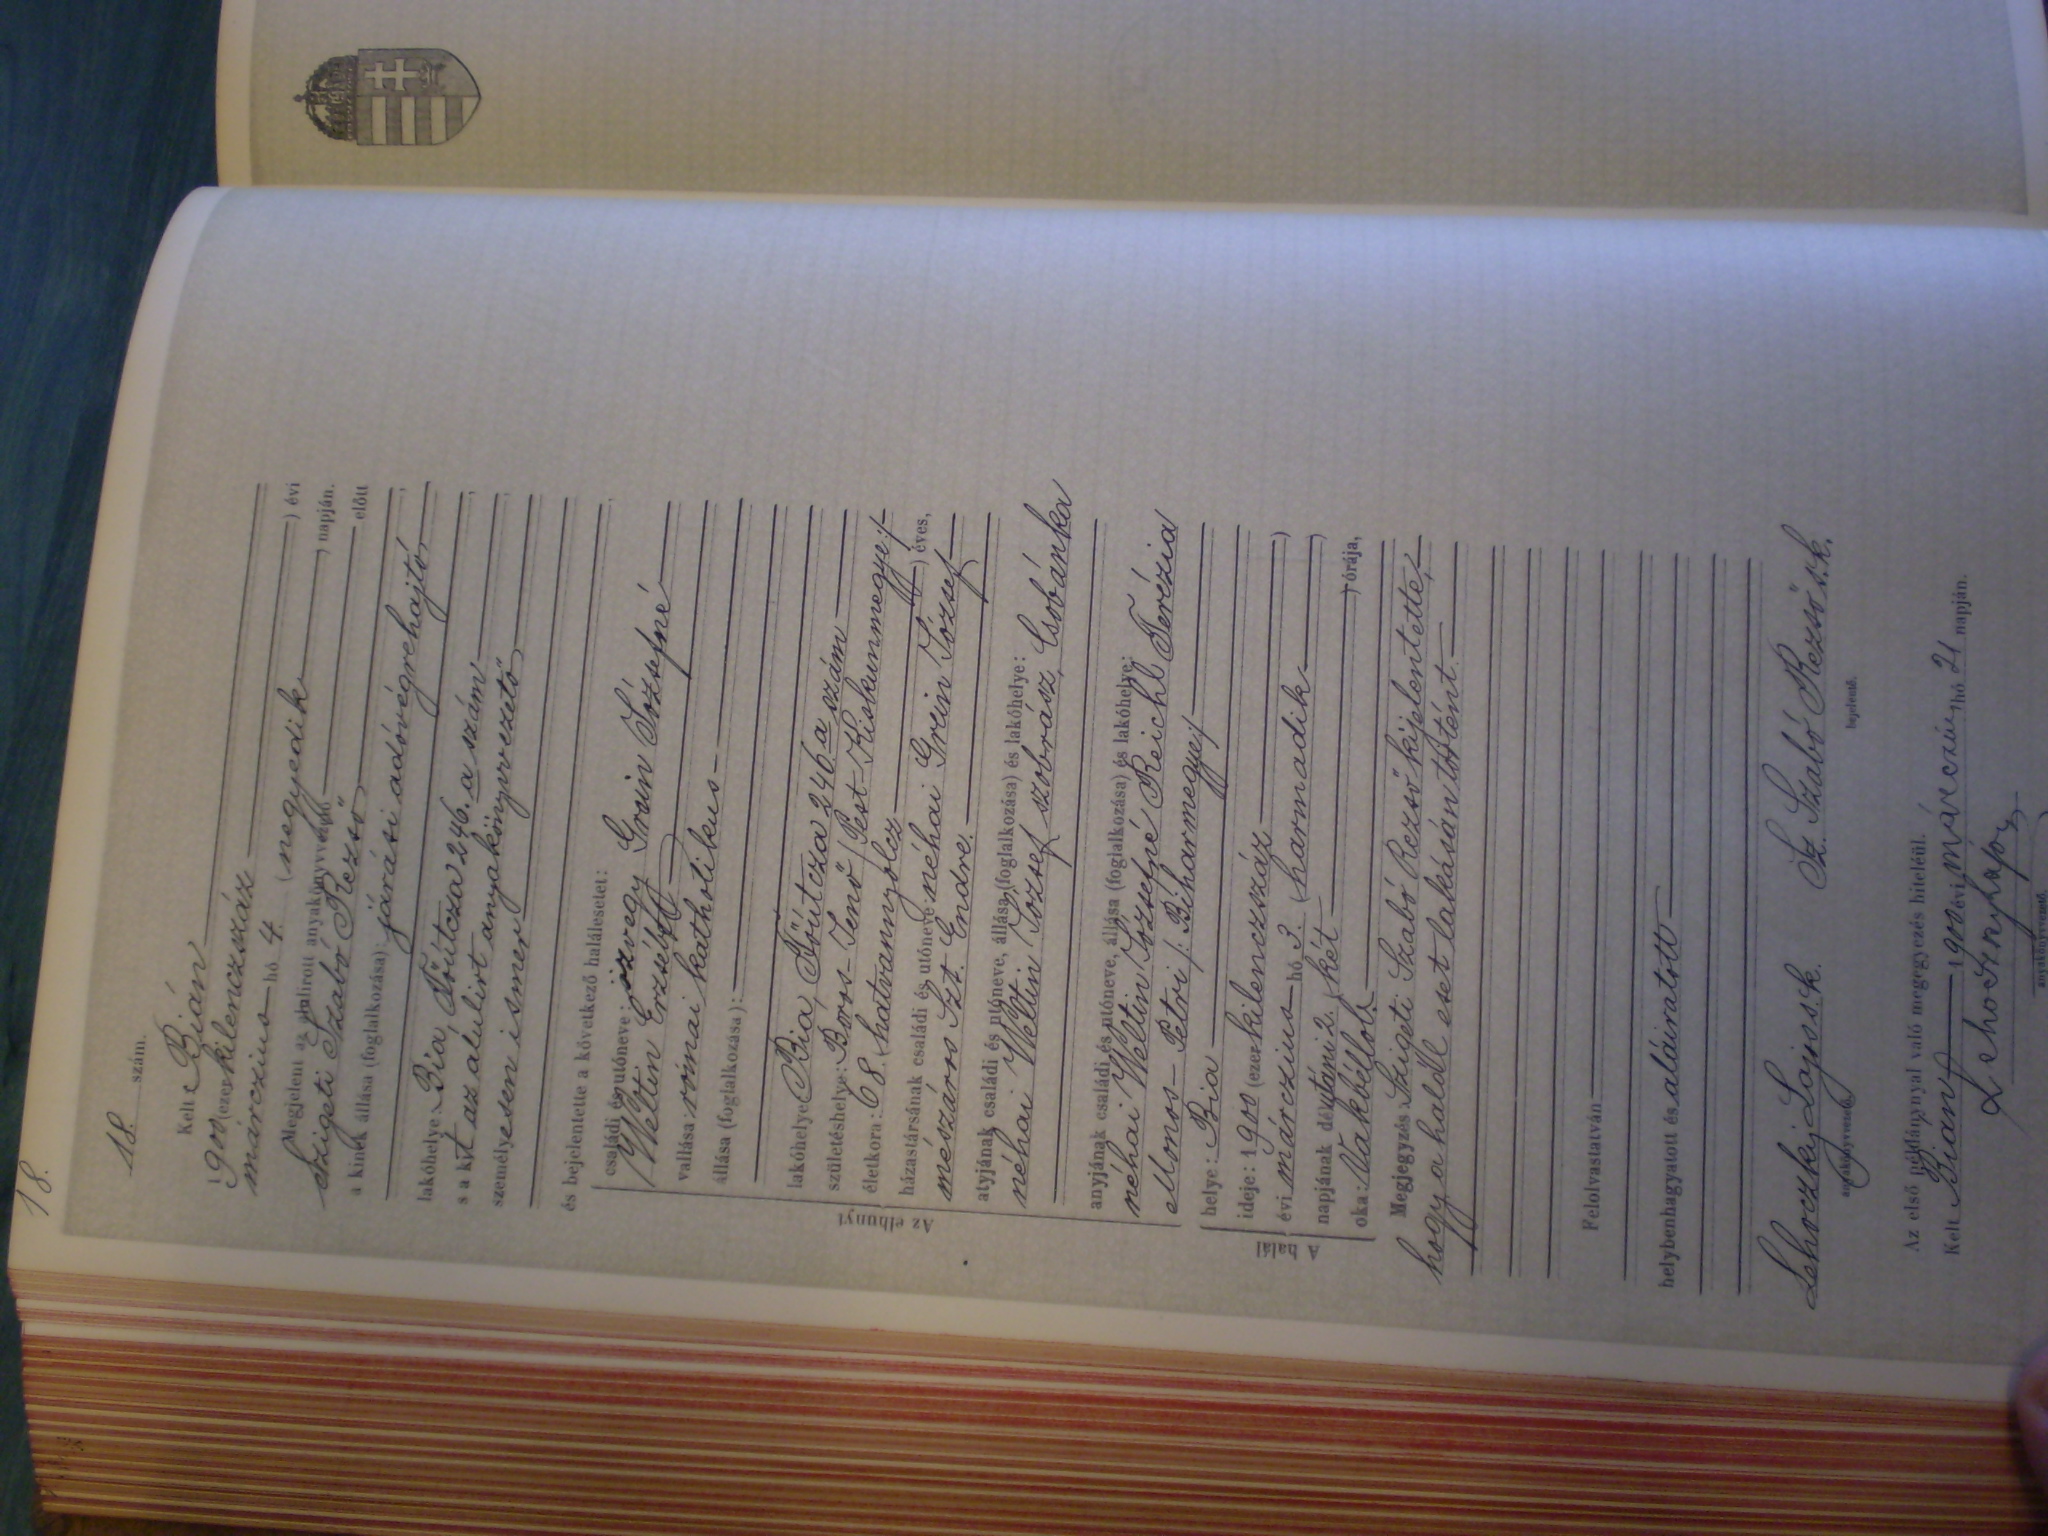 18.
18. szám.
Kelt Bián
1900 (ezer kilenczszáz
márczius hó 4. (negyedik) évi
napján.
Megjelent az alulirott anyakönyvvezető előtt
Szigeti Szabó Rezső
a kinek állása (foglalkozása): járási adóvégrehajtó,
lakóhelye: Bia Főútcza 246. a szám,
s a kit az alulirt anyakönyvvezető
személyesen ismer
és bejelentette a következő halálesetet:
Az elhunyt
családi és utóneve: özvegy Grein Józsefné
Weltin Erzsébet
vallása: római katholikus
állása (foglalkozása):
lakóhelye: Bia, Főútcza 246. a szám
születéshelye: Boros-Jenő /: Pest-Kiskunmegye :/
életkora: 68. (hatvannyolcz) éves,
házastársának családi és utóneve: néhai Grein József
mészáros Szt. Endre.
atyjának családi és utóneve, állása (foglalkozása) és lakóhelye:
néhai Weltin József szobrász, Csobánka
anyjának családi és utóneve, állása (foglalkozása) és lakóhelye:
néhai Weltin Józsefné Reichl Terézia
Monos-Petri /: Biharmegye :/
A halál
helye: Bia
ideje: 1900 (ezer kilenczszáz)
évi márczius hó 3. (harmadik)
napjának délutáni 2. (két) órája,
oka: Vakbéllob.
Megjegyzés: Szigeti Szabó Rezső kijelentette,
hogy a haláleset lakásán történt.
Felolvastatván
helybenhagyatott és aláiratott
Lehoczky Lajos s. k. Sz. Szabó Rezső s. k.
anyakönyvvezető. bejelentő.
Az első példánnyal való megegyezés hiteléül.
Kelt Bian, 1900 évi márczius hó 21 napján.
Lehoczky Lajos
anyakönyvvezető.